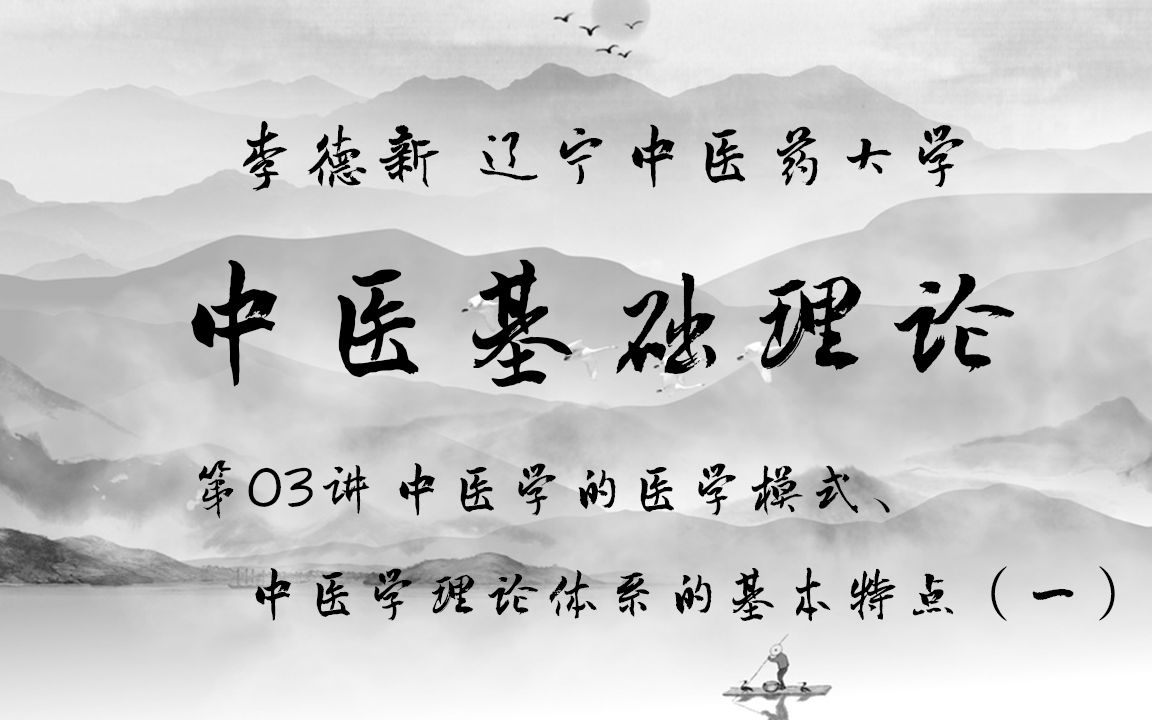 李德新 辽宁中医药大学
中医基础理论
第03讲 中医学的医学模式、
中医学理论体系的基本特点（一）